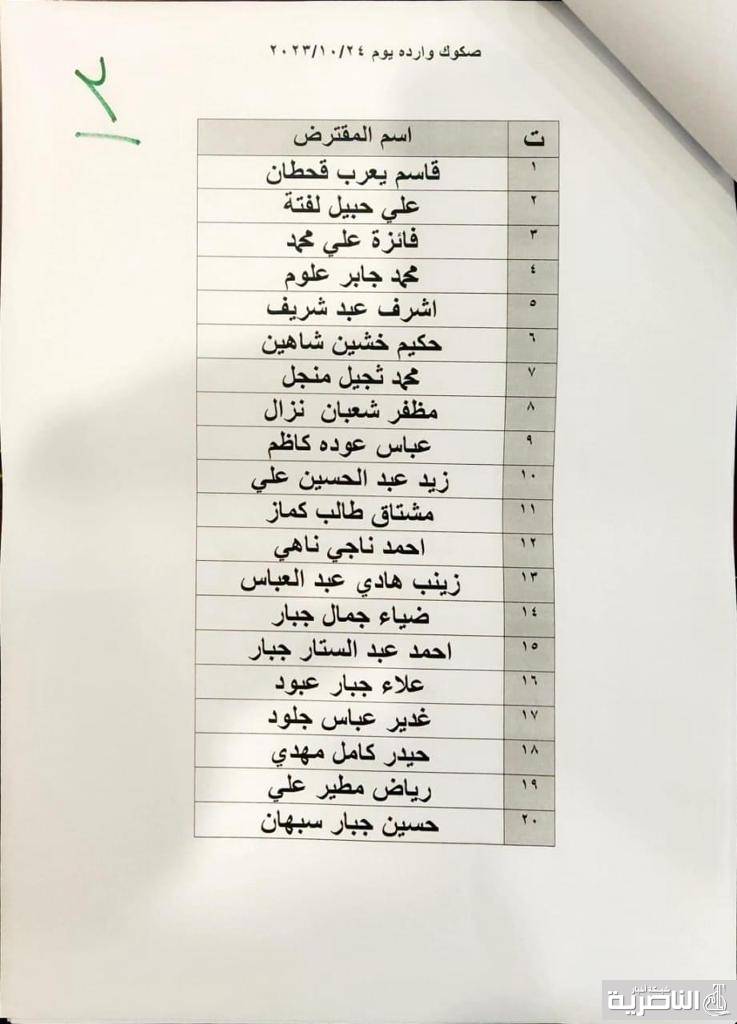 صكوك وارده يوم ٢٠٢٣/١٠/٢٤
ت اسم المقترض
١ قاسم يعرب قحطان
٢ علي حبيل لفتة
٣ فائزة علي محمد
٤ محمد جابر علوم
٥ اشرف عبد شريف
٦ حكيم خشين شاهين
٧ محمد ثجيل منجل
٨ مظفر شعبان نزال
٩ عباس عوده كاظم
١٠ زيد عبد الحسين علي
١١ مشتاق طالب كماز
١٢ احمد ناجي ناهي
١٣ زينب هادي عبد العباس
١٤ ضياء جمال جبار
١٥ احمد عبد الستار جبار
١٦ علاء جبار عبود
١٧ غدير عباس جلود
١٨ حيدر كامل مهدي
١٩ رياض مطير علي
٢٠ حسين جبار سبهان
شبكة أخبار
الناصرية